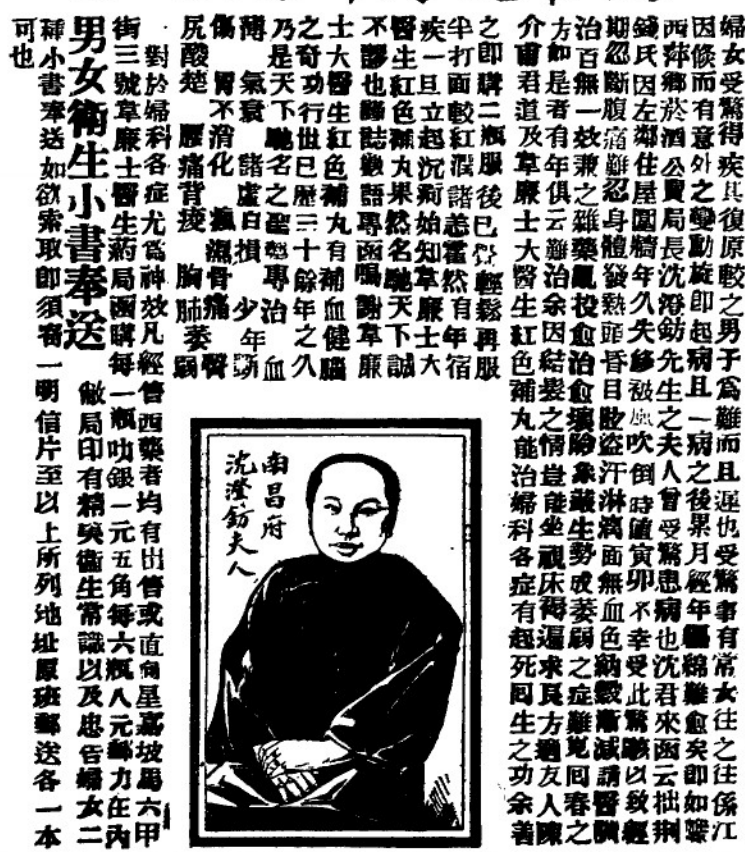 婦女受驚得疾其復原較之男子爲難而且遲也受驚事有常女往之往係江
因倏而有意外之變動旋即起病且一病之後累月經年纏綿難愈矣即如
西萍鄉菸酒公賣局長沈澄鈁先生之夫人曾受驚患病也沈君來函云拙荊
錢氏因左鄰住屋圍牆年久失修被風吹倒時值寅卯不幸受此驚駭以致經
期忽斷腹痛難忍身體發熱頭昏目眩盜汗淋漓面無血色納穀漸減請醫調
治百無一效兼之雜藥亂投愈治愈壞險象叢生勢成萎弱之症難覓回春之
方如是者有年俱云難治余因結髮之情豈能坐視床褥遍求良方適友人陳
介甫君道及韋廉士大醫生紅色補丸能治婦科各症有起死回生之功余善
之即購二瓶服後已覺輕鬆再服
半打面較紅潤諸恙霍然有年宿
疾一旦立起沉疴始知韋廉士大
醫生紅色補丸果然名馳天下誠
不謬也謹誌數語專函鳴謝韋廉
士大醫生紅色補丸有補血健腦
之奇功行世已歷三十餘年之久
乃是天下馳名之聖藥專治 血
薄 氣衰 諸虛百損 少年斲
傷 胃不消化 瘋濕骨痛 臀
尻酸楚 腰痛背痠 胸肺萎弱
南昌府
沈澄鈁夫人
對於婦科各症尤爲神效凡經售西藥者均有出售或直向星嘉坡馬六甲
街三號韋廉士醫生藥局函購每一瓶叻銀一元五角每六瓶八元郵力在內
男女衛生小書奉送 敝局印有精美衛生常識以及忠告婦女二
種小書奉送如欲索取即須寄一明信片至以上所列地址原班郵送各一本
可也